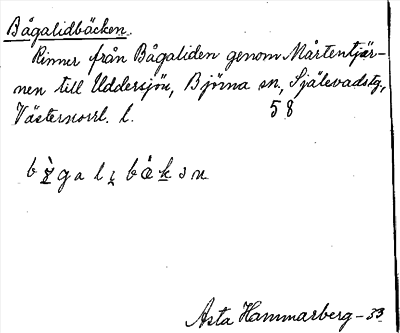 Bågalidbäcken.
Rinner från Bågaliden genom Mårtentjär-
nen till Uddersjön, Björna sn, Själevadstg,
Västernorrl. l. 58
Asta Hammarberg - 33